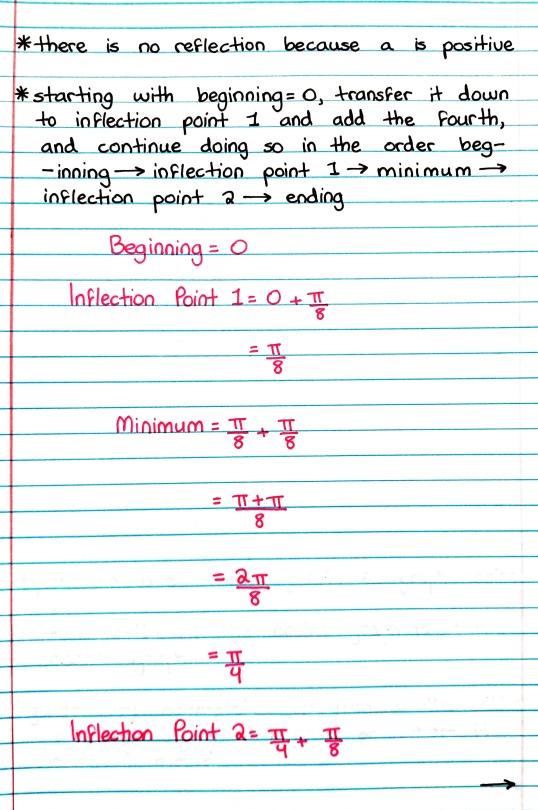 *there is no reflection because a is positive
*starting with beginning=0, transfer it down
to inflection point 1 and add the fourth,
and continue doing so in the order beg-
-inning → inflection point 1 → minimum →
inflection point 2 → ending
Beginning = 0
Inflection Point 1 = 0 + π/8
= π/8
Minimum = π/8 + π/8
= π+π/8
= 2π/8
= π/4
Inflection Point 2 = π/4 + π/8
→